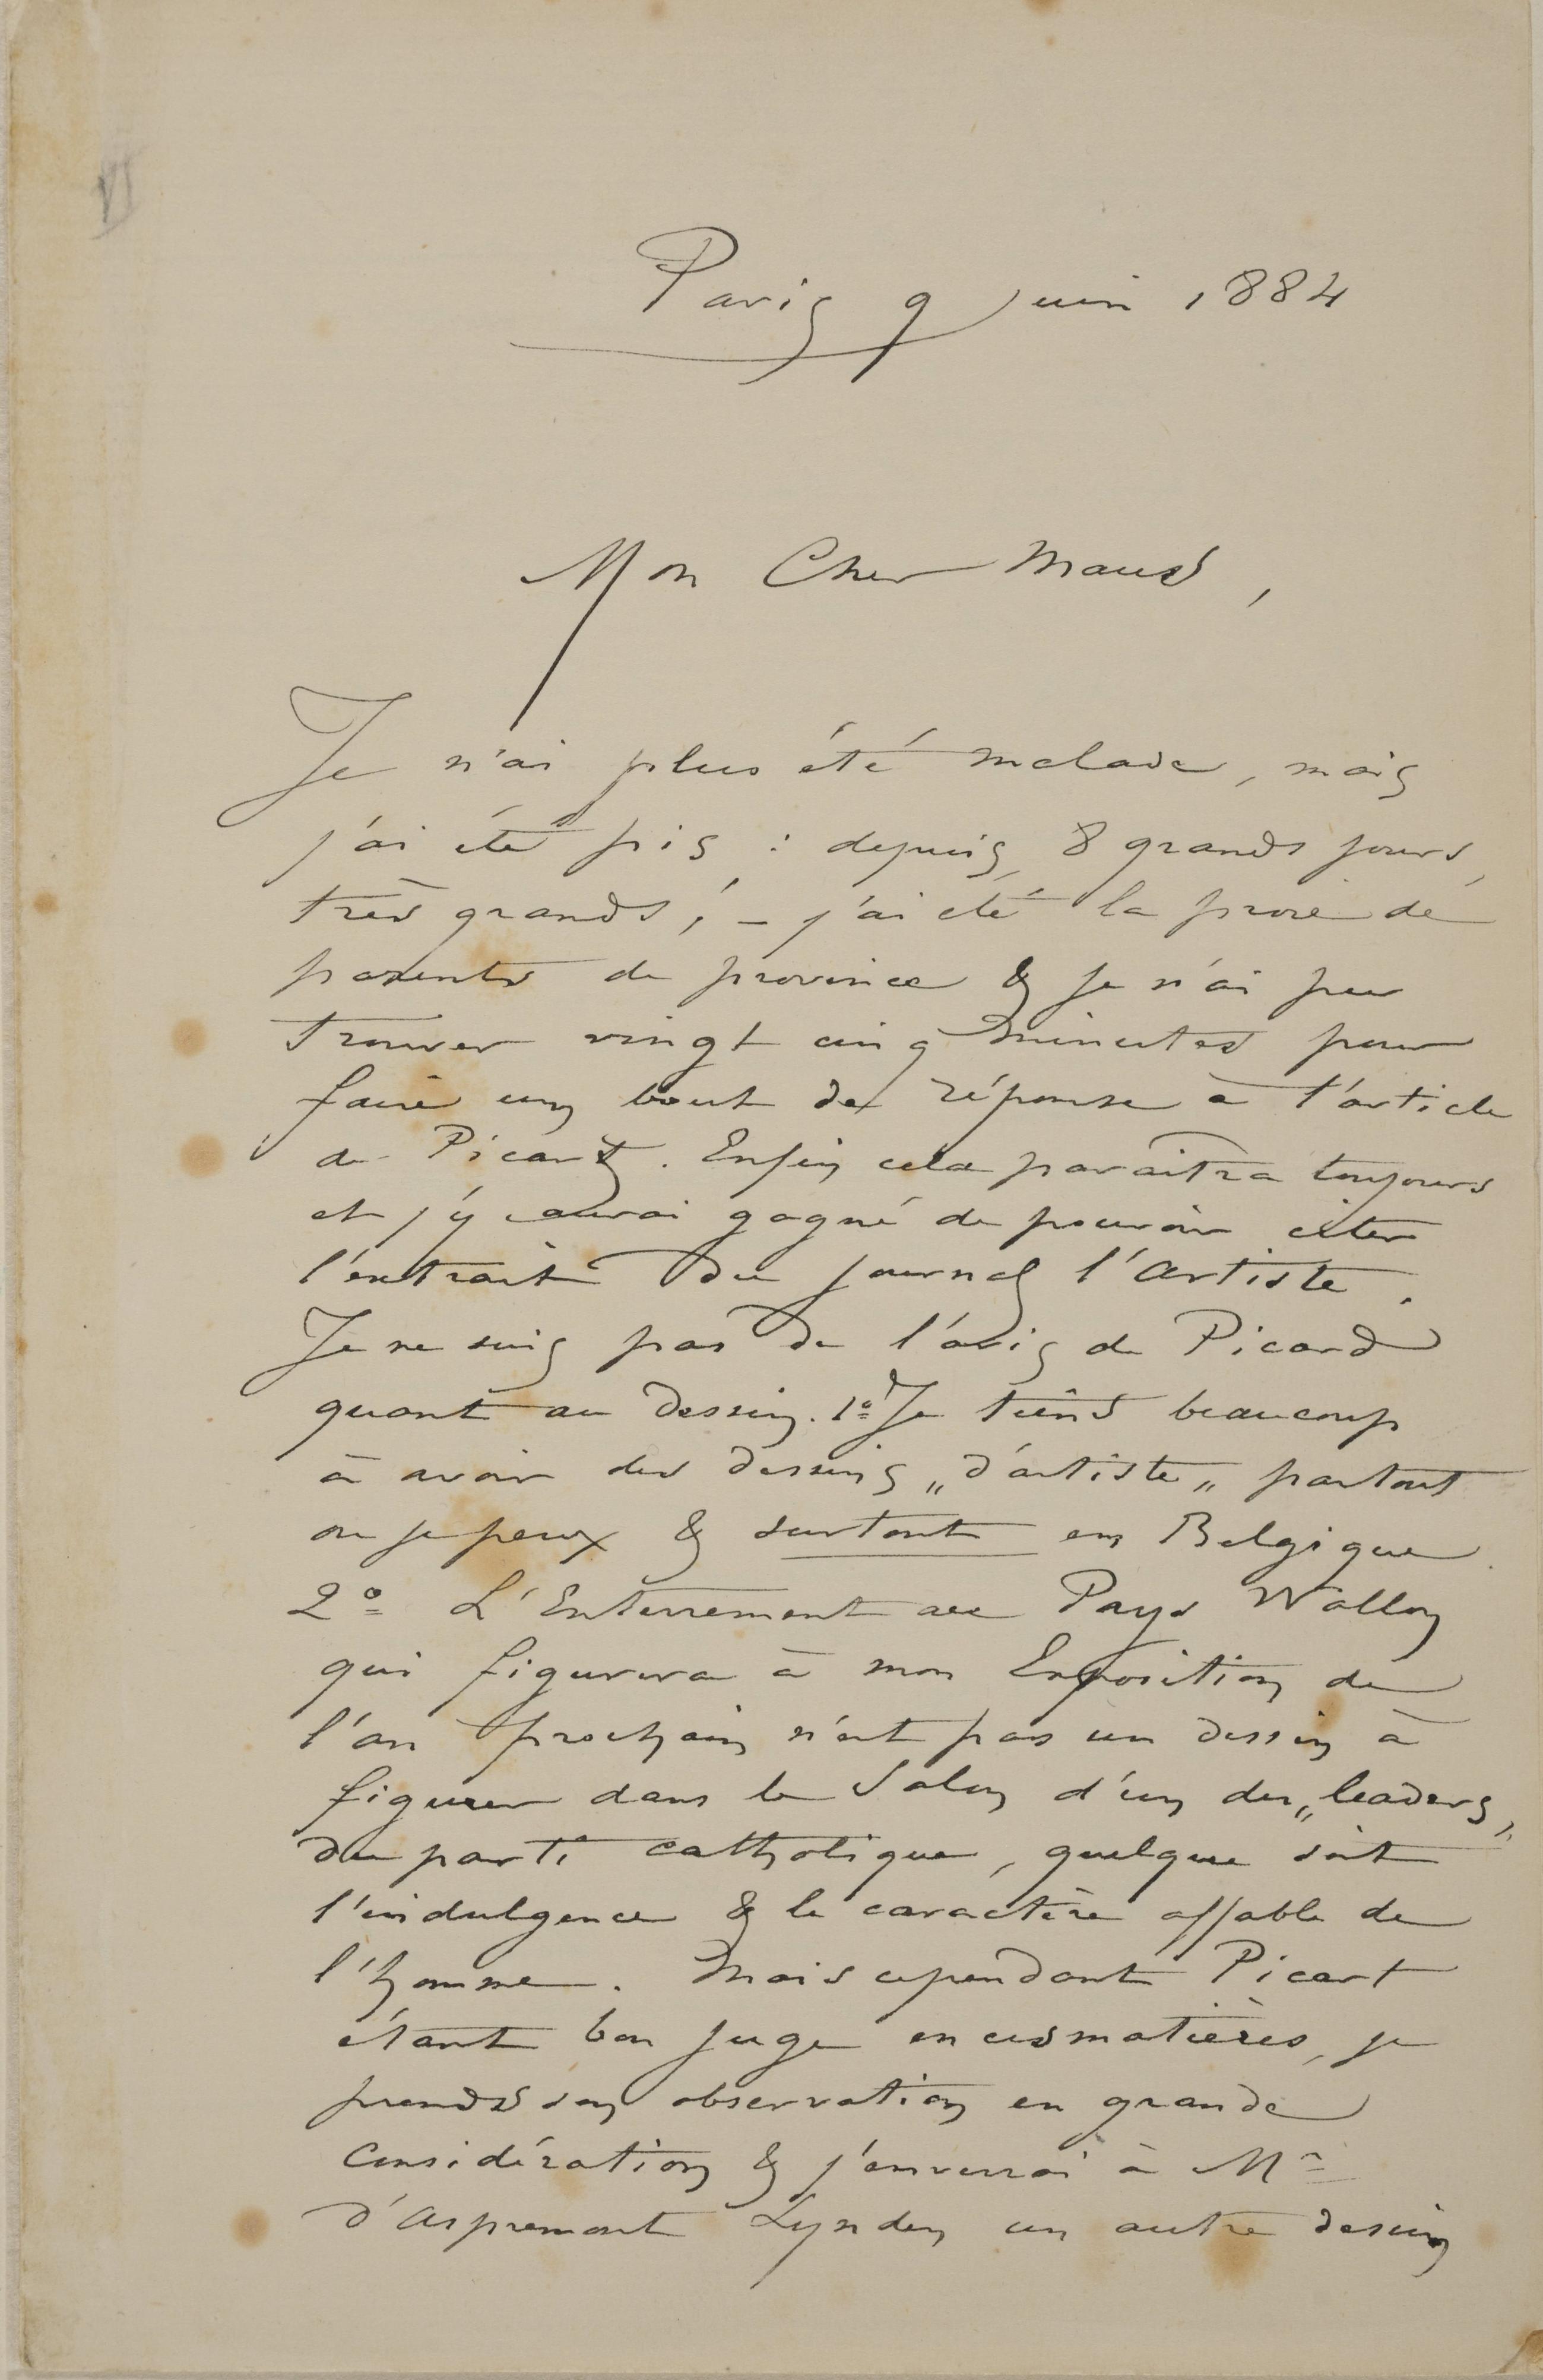 VI
Paris 9 Juin 1884
Mon Cher Maus,
Je n'ai plus été malade, mais
j'ai été pis : depuis 8 grands jours,
très grands, – j'ai été la proie de
parents de province & je n'ai pu
trouver vingt cinq minutes pour
faire un bout de réponse à l'article
de Picard. Enfin cela paraîtra toujours
et j'y aurai gagné de pouvoir citer
l'extrait du journal l'Artiste.
Je ne suis pas de l'avis de Picard
quant au dessin. 1º Je tiens beaucoup
à avoir des dessins „d'artiste„ partout
ou je peux & surtout en Belgique
2º L'Enterrement au Pays Wallon
qui figurera à mon Exposition de
l'an prochain n'est pas un dessin à
figurer dans le Salon d'un des „leaders„
du parti catholique, quelque soit
l'indulgence & le caractère affable de
l'homme. Mais cependant Picart
étant bon juge en ces matières, je
prends son observation en grande
considération & j'enverrai à Mr
d'Aspremont Lynden un autre dessin